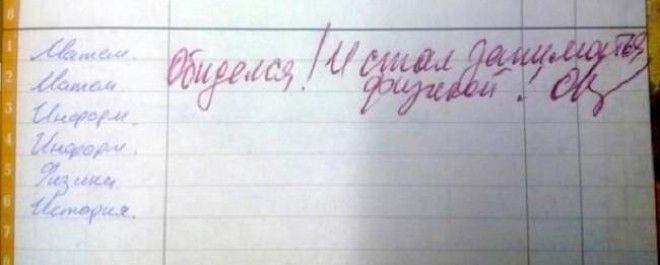 8
1 Матем.
2 Матем
3 Информ.
4 Информ.
5 Физика
6 История.
7
8
Обиделся! И стал заниматься
физикой!